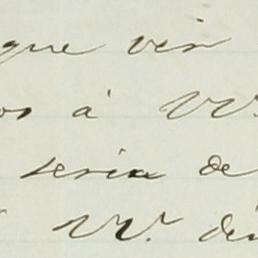 que vir
os á VV.
seria de
VV. di